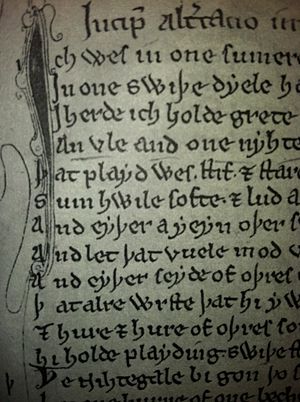 Incip̄ alt͛cacio in
Ich wes in one sumere
In one swiþe dyele ha
Iherde ich holde grete
An vle and one nyhte
þat playd wes. stif. ⁊ star
sum hwile softe. ⁊ lud a
And eyþer ayeyn oþer s
And let þat vuele mod v
And eyþer seyde of oþres
þat alre wrste þat hi yw
⁊ hure ⁊ hure of oþres so
hi holde playding swiþe st
Þe nihtegale bigon þo s
In one hurne of one bech